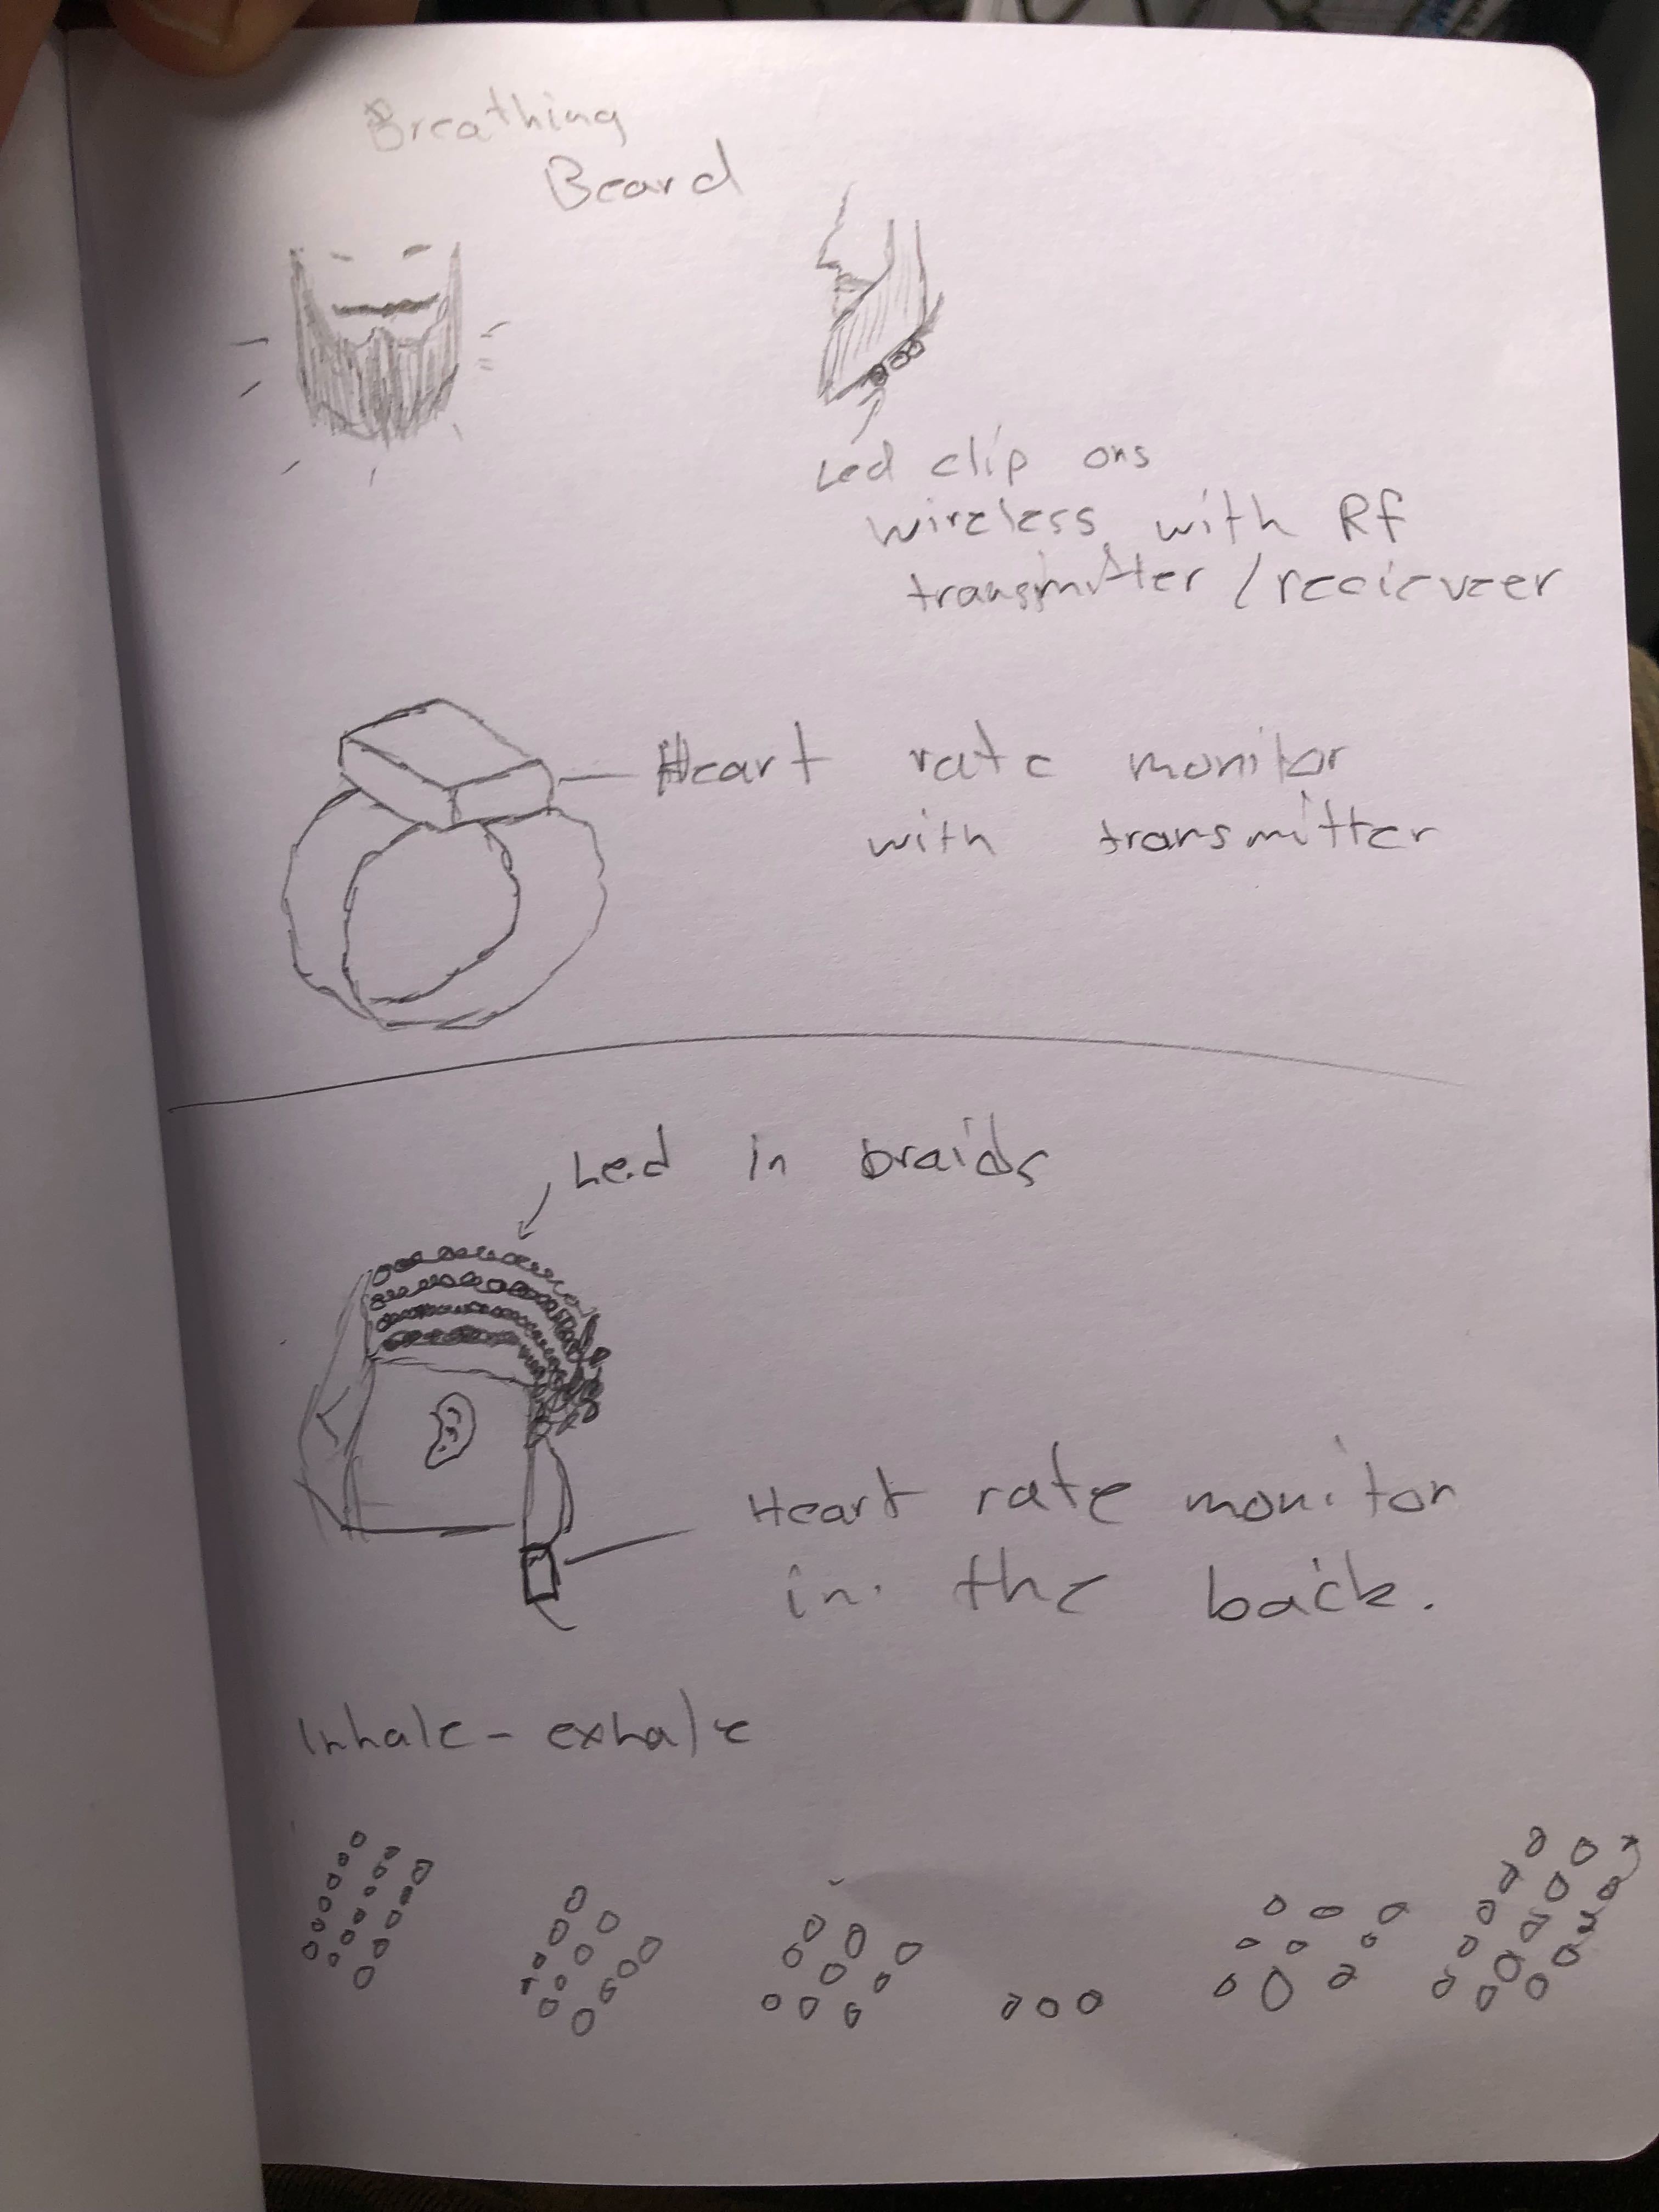 Breathing
Beard
Led clip ons
wireless with Rf
transmitter / recieveer
Heart rate monitor
with transmitter
Led in braids
Heart rate monitor
in the back.
Inhale - exhale